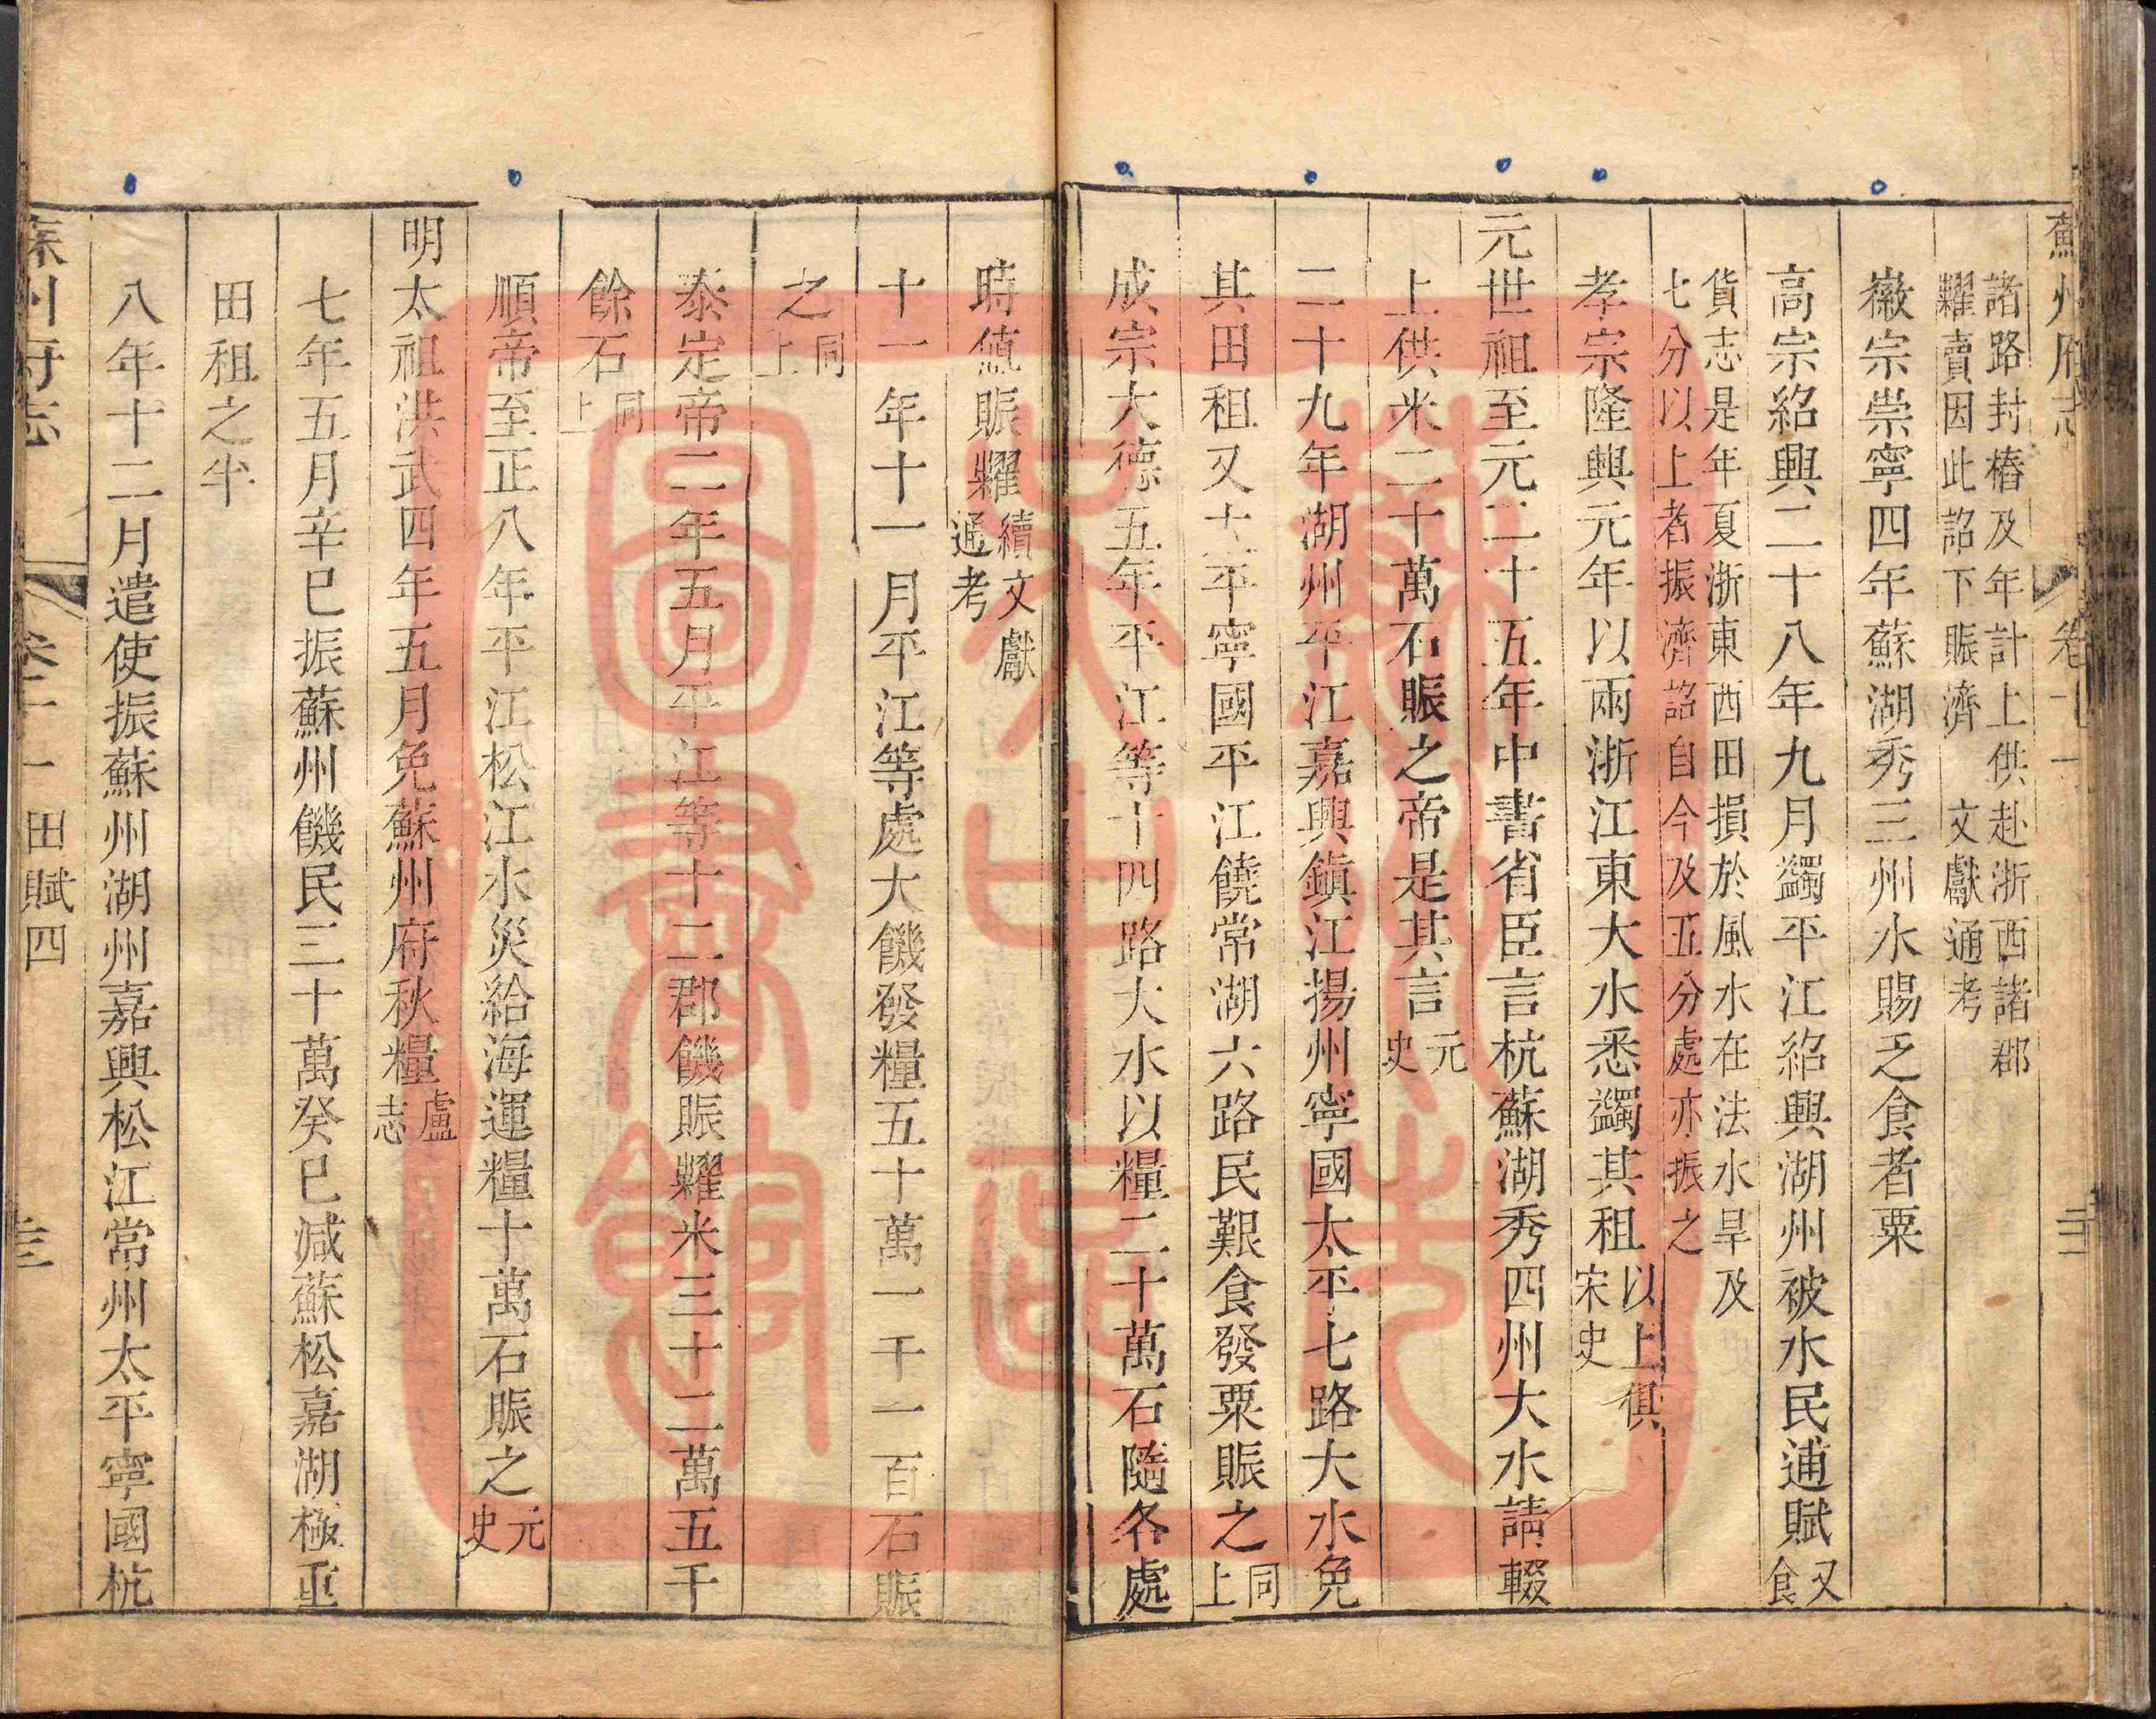 蘇州府志
卷十
諸路封樁及年計上供赴浙西諸郡
糶賣因此詔下賑濟 文獻通考
徽宗崇寧四年蘇湖秀三州水賜乏食者粟
高宗紹興二十八年九月蠲平江紹興湖州被水民逋賦又食
貨志是年夏浙東西田損於風水在法水旱及
七分以上者振濟詔自今及五分處亦振之
孝宗隆興元年以兩浙江東大水悉蠲其租以上俱宋史
元世祖至元二十五年中書省臣言杭蘇湖秀四州大水請輟
上供米二十萬石賑之帝是其言元史
二十九年湖州平江嘉興鎮江揚州寧國太平七路大水免
其田租又太平寧國平江饒常湖六路民艱食發粟賑之同上
成宗大德五年平江等十四路大水以糧二十萬石隨各處
時値賑糶續文獻通考
十一年十一月平江等處大饑發糧五十萬一千一百石賑
之同上
泰定帝二年五月平江等十二郡饑賑糶米三十二萬五千
餘石同上
順帝至正八年平江松江水災給海運糧十萬石賑之元史
明太祖洪武四年五月免蘇州府秋糧盧志
七年五月辛巳振蘇州饑民三十萬癸巳減蘇松嘉湖極重
田租之半
八年十二月遣使振蘇州湖州嘉興松江常州太平寧國杭
蘇州府志
卷十一 田賦四
圖書館